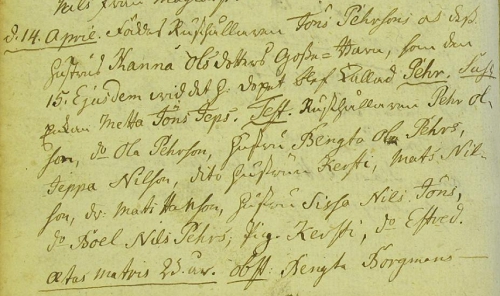 d. 14. April. Föddes Rusthållaren Jöns Pehrsons och dess
hustrus Hanna Ols dotters Gosse-Barn, som den
15. Ejusdem vid det h. dopet blef kallad Pehr. Susc.
pigan Metta Jöns Jeps. Test. Rusthållaren Pehr Ol-
son, do Ola Pehrson, hustru Bengta Ola Pehrs,
Jeppa Nilson, dito hustrun Kersti, Mats Nil-
son, dr: Mats Hanson, hustru Sissa Nils Jöns,
do Boel Nils Pehrs, pig. Kersti, do Estred.
ætas matris 23. år. obst: Bengta Borgmans